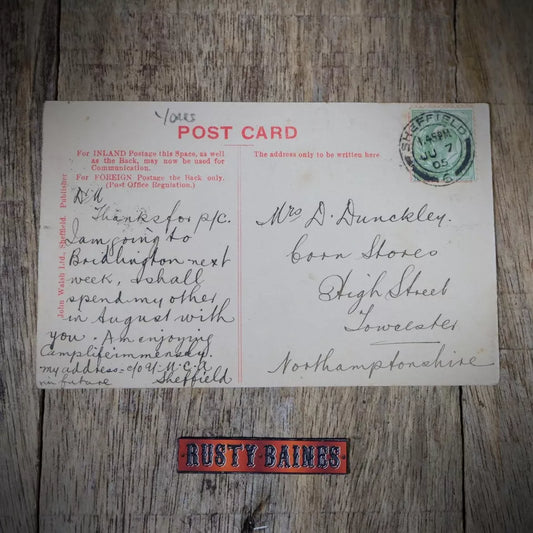 POST CARD
For INLAND Postage this Space, as well
as the Back, may now be used for
Communication.
For FOREIGN Postage the Back only.
(Post Office Regulation.)
The address only to be written here.
John Walsh Ltd., Sheffield, Publisher
SHEFFIELD
1.45PM
JU 7
05
Dr. A
Thanks for p/c.
I am going to
Bridlington next
week, & shall
spend my other
in August with
you. Am enjoying
Camp life immensely.
my address = c/o Y.M.C.A
in future Sheffield
Mrs D. Dunckley.
Corn Stores
High Street
Towcester
Northamptonshire
RUSTY BAINES